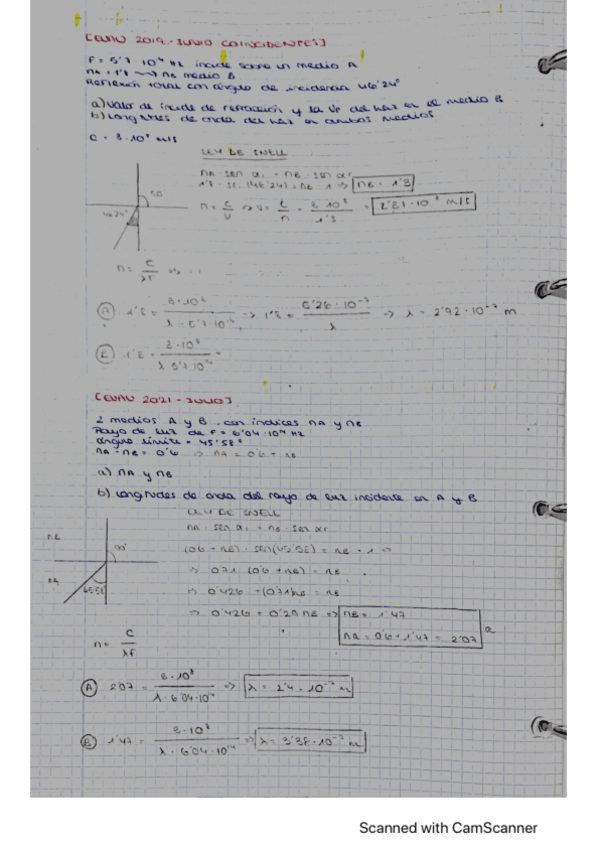 [EVAU 2019 - JUNIO COINCIDENTES]
F = 5'7 · 10¹⁴ Hz incide sobre un medio A
nA = 1'8 nB medio B
Reflexión total con ángulo de incidencia 46'24°
a) Valor de índice de refracción y la Vp del haz en el medio B
b) Longitudes de onda del haz en ambos medios
C = 3 · 10⁸ m/s
LEY DE SNELL
nA · sen αi = nB · sen αr
1'8 · sen (46'24) = nB · 1 => nB = 1'3
90
46'24°
n = C/V => v = C/n = 3·10⁸/1'3 = 2'31 · 10⁸ m/s
n = C/λF =>
(A) 1'8 = 3·10⁸/λ · 5'7 · 10¹⁴ => 1'8 = 5'26 · 10⁻⁷/λ => λ = 2'92 · 10⁻⁷ m
(B) 3·10⁸/λ 5'7·10¹⁴
[EVAU 2021 - JUNIO]
2 medios A y B, con índices nA y nB
Rayo de luz de F = 6'04 · 10¹⁴ Hz
ángulo límite = 45'58°
nA - nB = 0'6 => nA = 0'6 + nB
a) nA y nB
b) Longitudes de onda del rayo de luz incidente en A y B
LEY DE SNELL
nA · sen αi = nB · sen αr
nB
90°
(0'6 + nB) · sen(45'58) = nB · 1 =>
nA
45'58°
=> 0'71 · (0'6 + nB) = nB
=> 0'426 + 0'71nB = nB
=> 0'426 = 0'29 nB => nB = 1'47
nA = 0'6 + 1'47 = 2'07
a
n = C/λF
(A) 2'07 = 3·10⁸/λ · 6'04 · 10¹⁴ => λ = 2'4 · 10⁻⁷ m
(B) 1'47 = 3·10⁸/λ · 6'04 · 10¹⁴ => λ = 3'38 · 10⁻⁷ m
Scanned with CamScanner